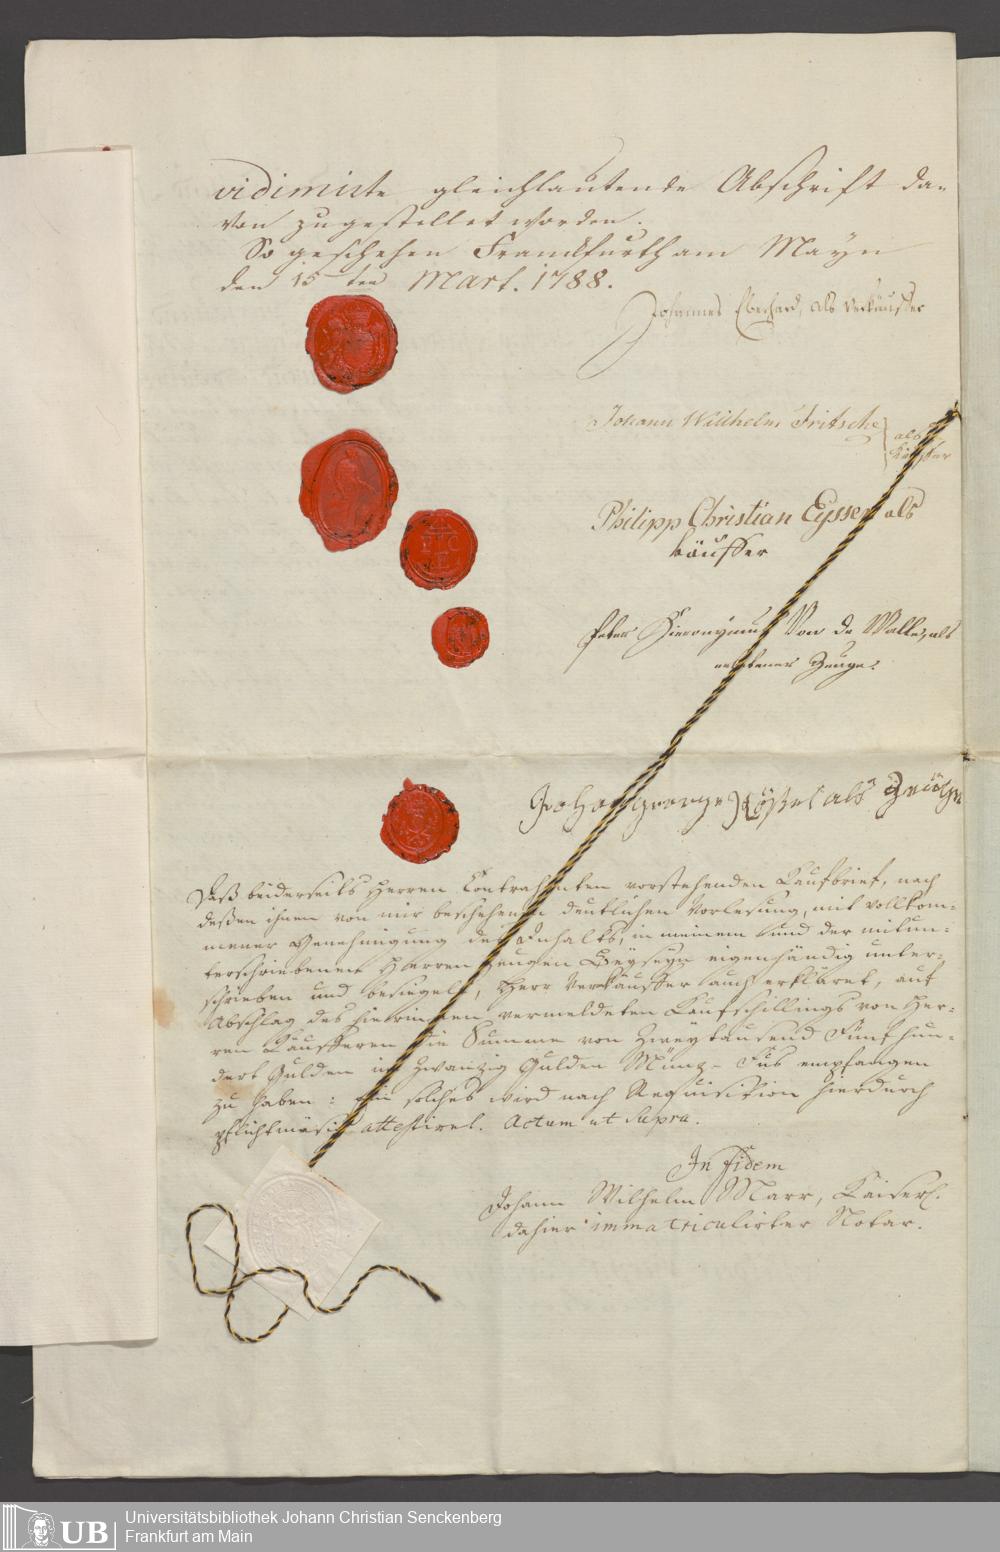 vidimirte gleichlautende Abschrift da-
von zugestellet worden.
So geschehen Franckfurth am Mayn
den 15ten Mart. 1788.
Johannes Eberhard, als Verkäuffer
Johann Willhelm Fritsche als
Käuffer
Philipp Christian Eyssen als
käuffer
Peter Hieronÿmus Von de Walle, als
erbetener Zeuge.
als Zeuge
Daß beiderseits Herren Contrahenten vorstehenden Kaufbrief, nach
deßen ihnen von mir beschehenen deutlichen Vorlesung, mit vollkom-
mener Genehmigung des Inhalts, in meinem und der mitun-
terschriebenen Herren Zeugen Beyseyn eigenhändig unter-
schrieben und besiegelt, Herr Verkäuffer auch erkläret, auf
Abschlag des hierinnen vermeldeten Kaufschillings von Her-
ren Käufferen die Summe von Zweytausend Fünfhun-
dert Gulden im Zwanzig Gulden Münz-Fus empfangen
zu haben: Ein solches wird nach Requisition hierdurch
pflichtmäsig attestiret. Actum ut Supra.
In fidem
Johann Wilhelm Marr, Kaiserl.
dahier immatriculirter Notar.
P C
E
UB
Universitätsbibliothek Johann Christian Senckenberg
Frankfurt am Main